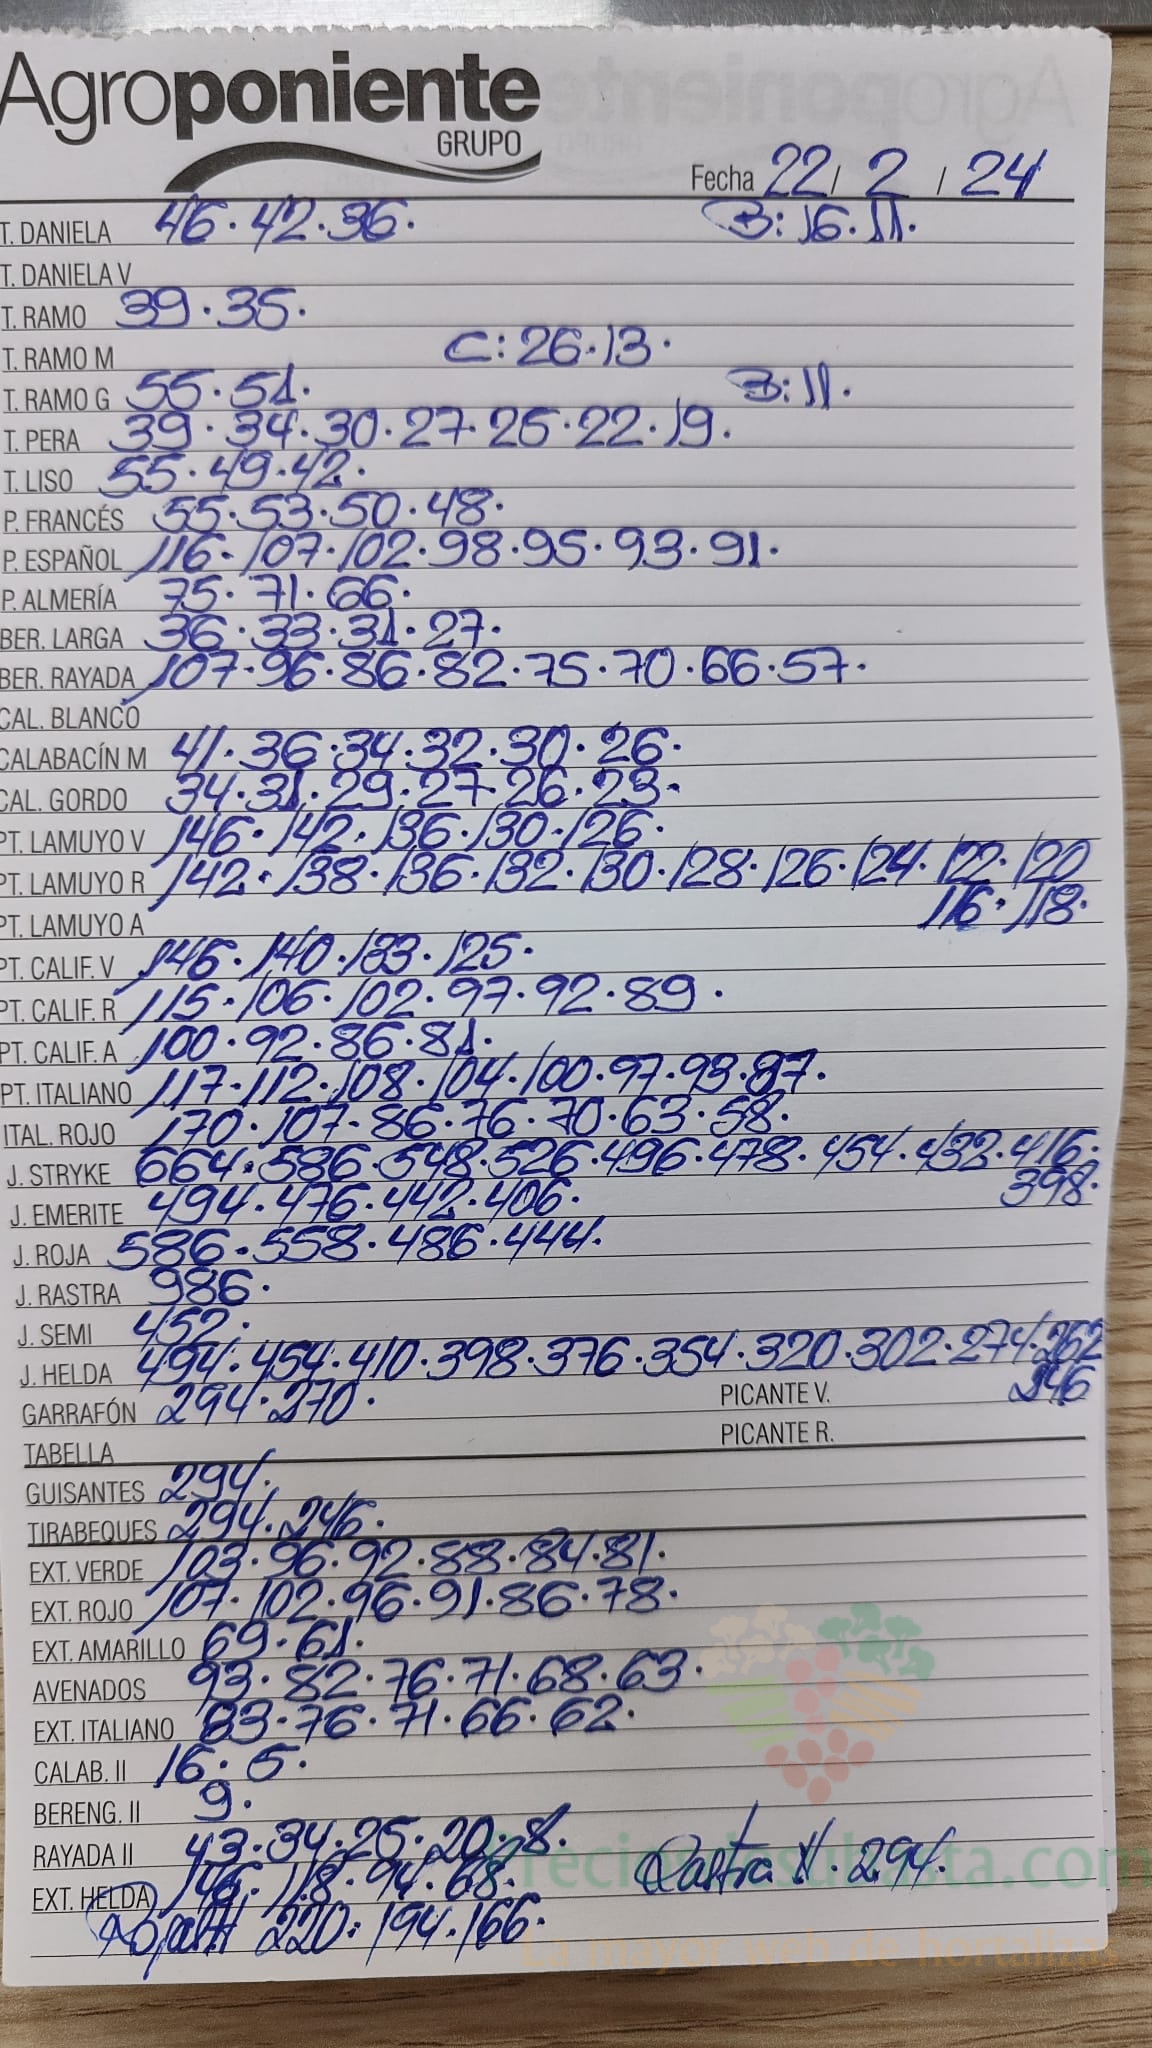 Agroponiente
GRUPO
Fecha 22 / 2 / 24
T. DANIELA 46. 42. 36. B: 16. 11.
T. DANIELA V
T. RAMO 39. 35.
T. RAMO M C: 26. 13.
T. RAMO G 55. 51. B: 11.
T. PERA 39. 34. 30. 27. 25. 22. 19.
T. LISO 55. 49. 42.
P. FRANCÉS 55. 53. 50. 48.
P. ESPAÑOL 116. 107. 102. 98. 95. 93. 91.
P. ALMERÍA 75. 71. 66.
BER. LARGA 36. 33. 31. 27.
BER. RAYADA 107. 96. 86. 82. 75. 70. 66. 57.
CAL. BLANCO
CALABACÍN M 41. 36. 34. 32. 30. 26.
CAL. GORDO 34. 31. 29. 27. 26. 23.
PT. LAMUYO V 146. 142. 136. 130. 126.
PT. LAMUYO R 142. 138. 136. 132. 130. 128. 126. 124. 122. 120
116. 118.
PT. LAMUYO A
PT. CALIF. V 146. 140. 133. 125.
PT. CALIF. R 115. 106. 102. 97. 92. 89.
PT. CALIF. A 100. 92. 86. 81.
PT. ITALIANO 117. 112. 108. 104. 100. 97. 93. 87.
ITAL. ROJO 170. 107. 86. 76. 70. 63. 58.
J. STRYKE 664. 586. 548. 526. 496. 478. 454. 432. 416.
398.
J. EMERITE 494. 476. 442. 406.
J. ROJA 586. 558. 486. 444.
J. RASTRA 986.
J. SEMI 452.
J. HELDA 494. 454. 410. 398. 376. 354. 320. 302. 274. 262
246
GARRAFÓN 294. 270. PICANTE V.
TABELLA PICANTE R.
GUISANTES 294.
TIRABEQUES 294. 246.
EXT. VERDE 103. 96. 92. 88. 84. 81.
EXT. ROJO 107. 102. 96. 91. 86. 78.
EXT. AMARILLO 69. 61.
AVENADOS 93. 82. 76. 71. 68. 63.
EXT. ITALIANO 83. 76. 71. 66. 62.
CALAB. II 16. 5.
BERENG. II 9.
RAYADA II 43. 34. 25. 20. 8.
EXT. HELDA 146. 118. 94. 68. Rastra II. 294.
Roja II 220. 194. 166.
La mayor web de hortalizas